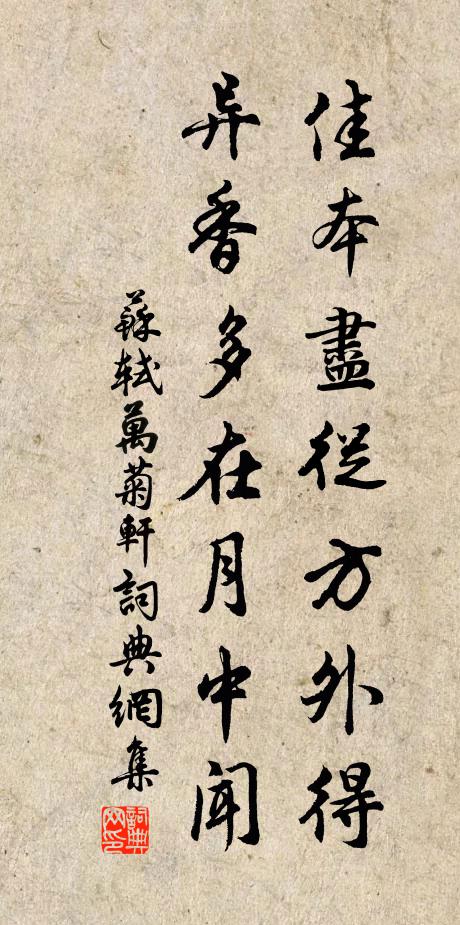 佳本盡從方外得
异香多在月中聞
蘇軾萬菊軒詞典網集
詞典网印